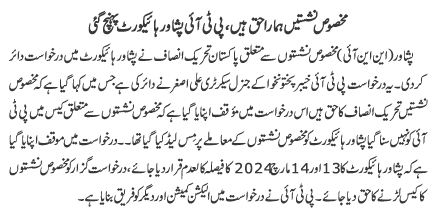 مخصوص نشستیں ہمارا حق ہیں، پی ٹی آئی پشاور ہائیکورٹ پہنچ گئی
پشاور (این این آئی) مخصوص نشستوں سے متعلق پاکستان تحریک انصاف نے پشاور ہائیکورٹ میں درخواست دائر
کردی۔ یہ درخواست پی ٹی آئی خیبر پختونخوا کے جنرل سیکرٹری علی اصغر نے دائر کی ہے جس میں کہا گیا ہے کہ مخصوص
نشستیں تحریک انصاف کا حق ہیں اس درخواست میں مؤقف اپنایا گیا ہے کہ مخصوص نشستوں سے متعلق کیس میں پی ٹی
آئی کو نہیں سنا گیا پشاور ہائیکورٹ کو مخصوص نشستوں کے معاملے پر مس لیڈ کیا گیا تھا۔۔ درخواست میں موقف اپنایا گیا
ہے کہ پشاور ہائیکورٹ کا 13 اور 14 مارچ 2024 کا فیصلہ کالعدم قرار دیا جائے، درخواست گزار کو مخصوص نشستوں
کا کیس لڑنے کا حق دیا جائے۔ پی ٹی آئی نے درخواست میں الیکشن کمیشن اور دیگر کو فریق بنایا ہے۔